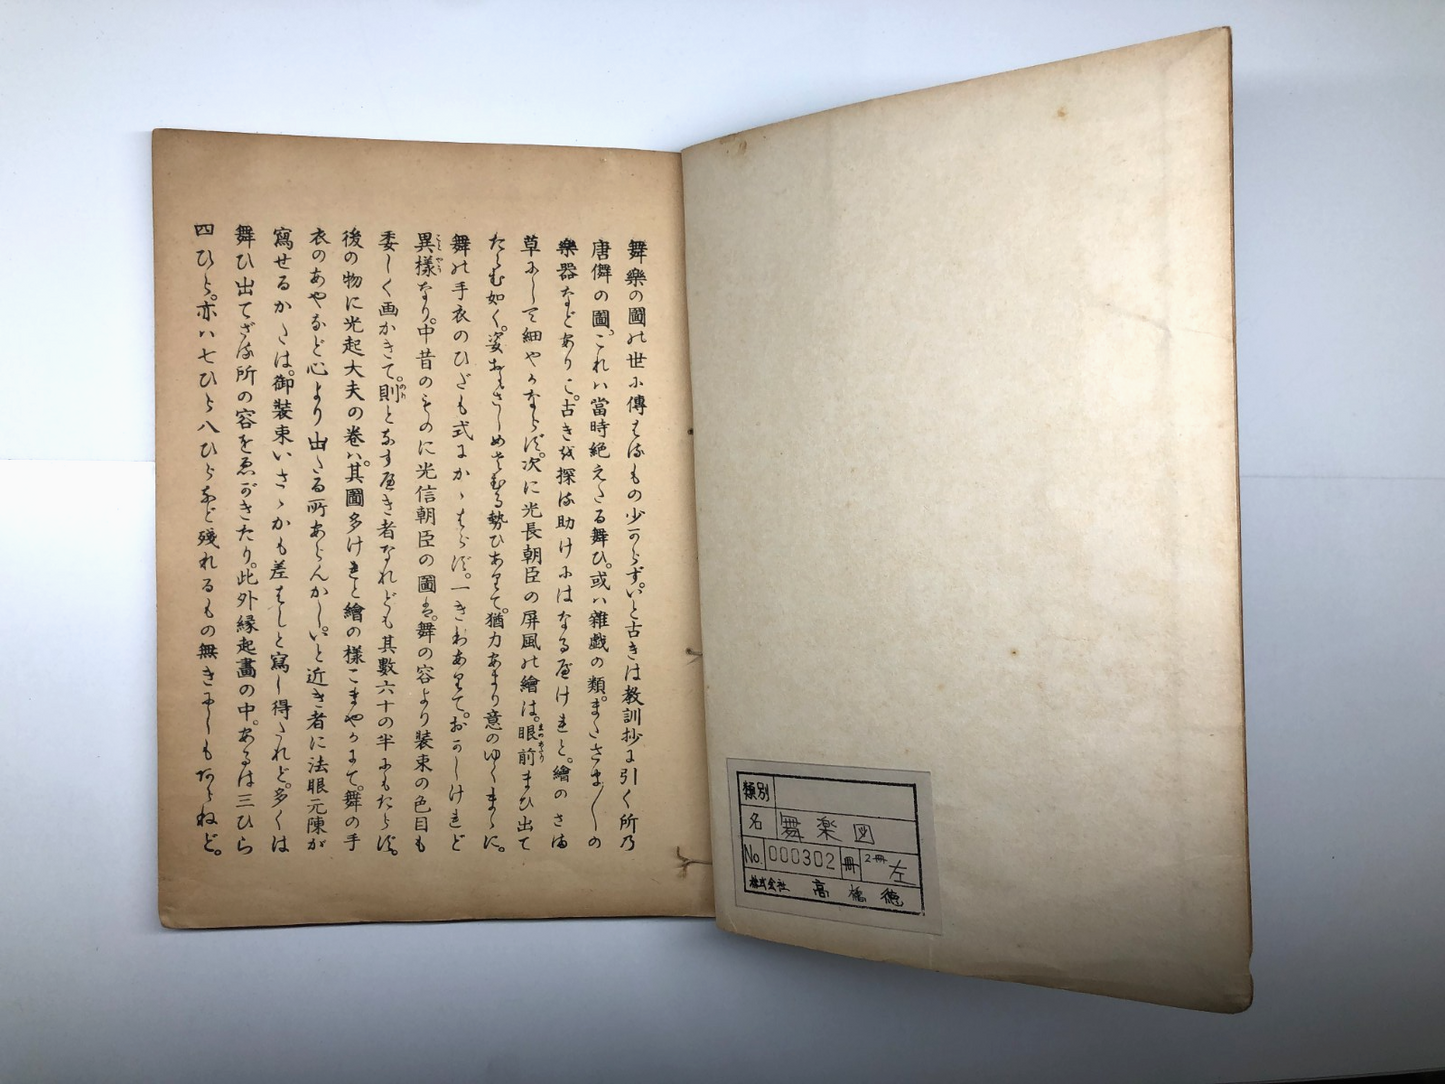 舞樂の圖の世に傳はるもの少からず。いと古きは教訓抄に引く所乃
唐儛の圖。これハ當時絶えたる舞ひ。或ハ雜戯の類。またさま〲の
樂器などありて。古きを探る助けにはなるべけれと。繪のさま
草にして細やかならず。次に光長朝臣の屏風の繪は。眼前まひ出て
たらむ如く。姿おもさしめでむる勢ひありて。猶力あまり意のゆくまゝに。
舞の手衣のひだも式にかゝはらず。一きわありて。おかしけれど
異樣なり。中昔のものに光信朝臣の圖は。舞の容より裝束の色目も
委しく画かきて。則となすべき者なれども其數六十の半にもたらず。
後の物に光起大夫の卷ハ。其圖多けれと繪の様こまやかにて。舞の手
衣のあやなど心より出たる所あらんかし。いと近き者に法眼元陳が
寫せるかたは。御裝束いさゝかも差はしと寫し得たれど。多くは
舞ひ出てざる所の容をゑがきたり。此外縁起畫の中。あるは三ひら
四ひら。亦ハ七ひら八ひらなど殘れるもの無きにしもあらねど。
類別
名 舞楽図
No. 000302 冊 2冊 左
株式会社 高橋徳